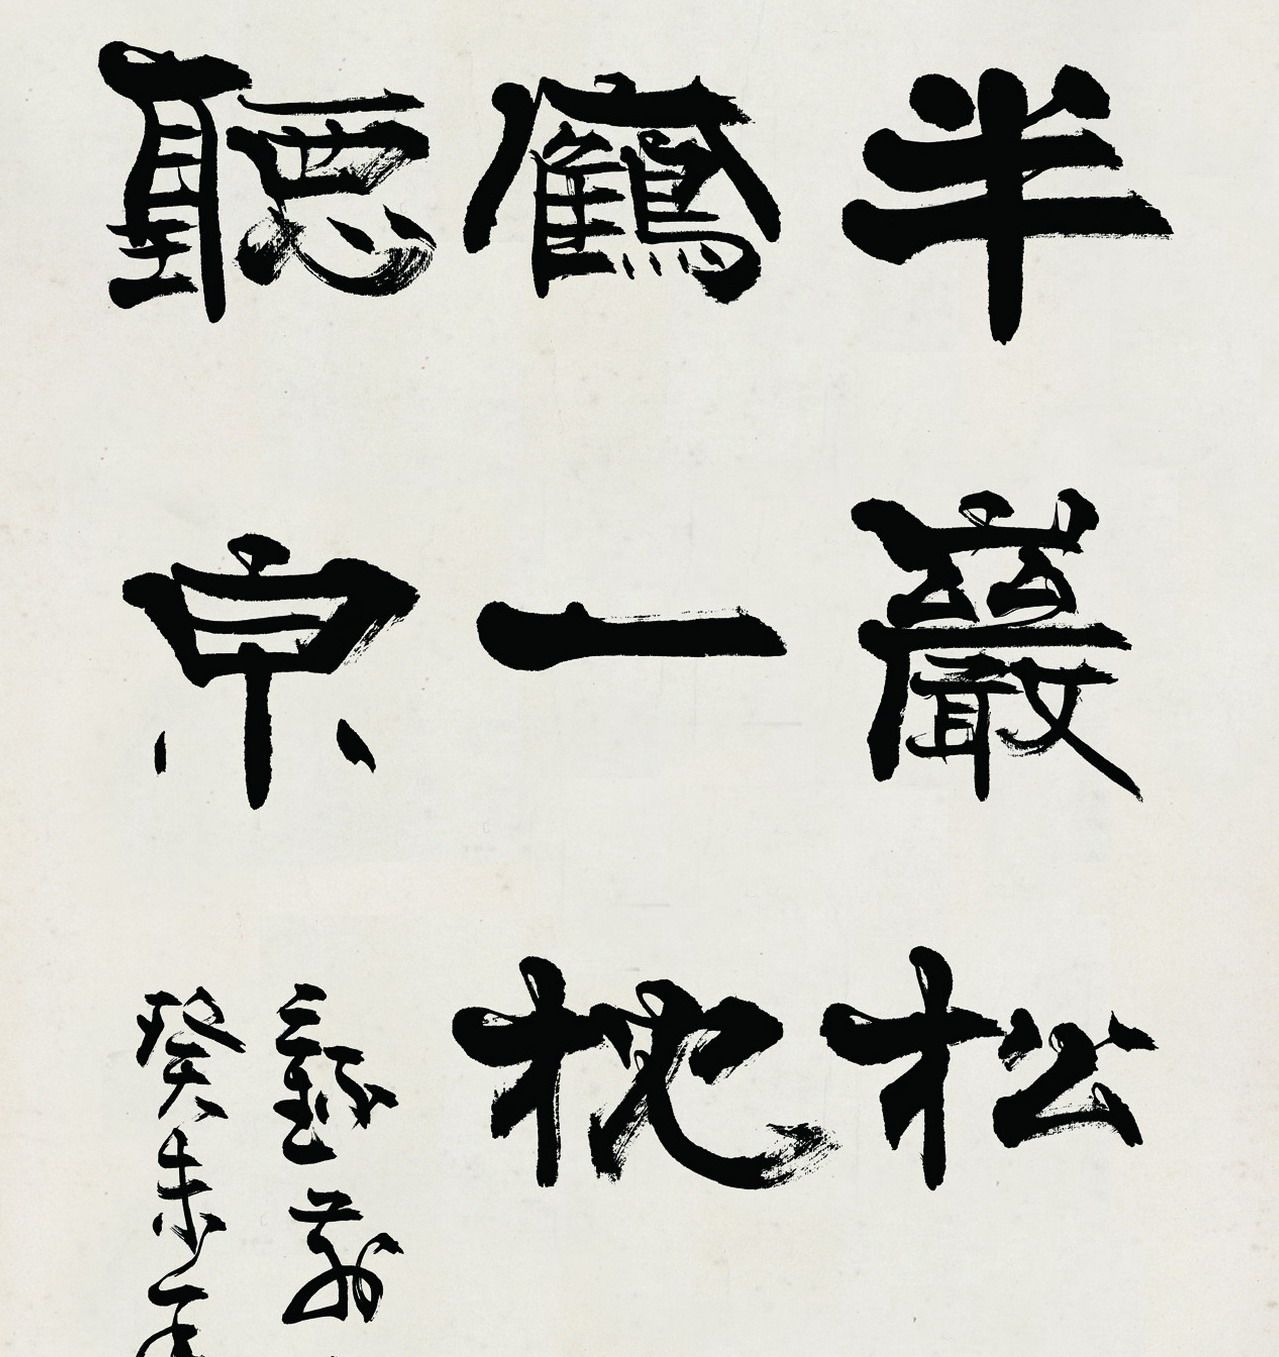 半巖松
鶴一枕
聽泉
癸未